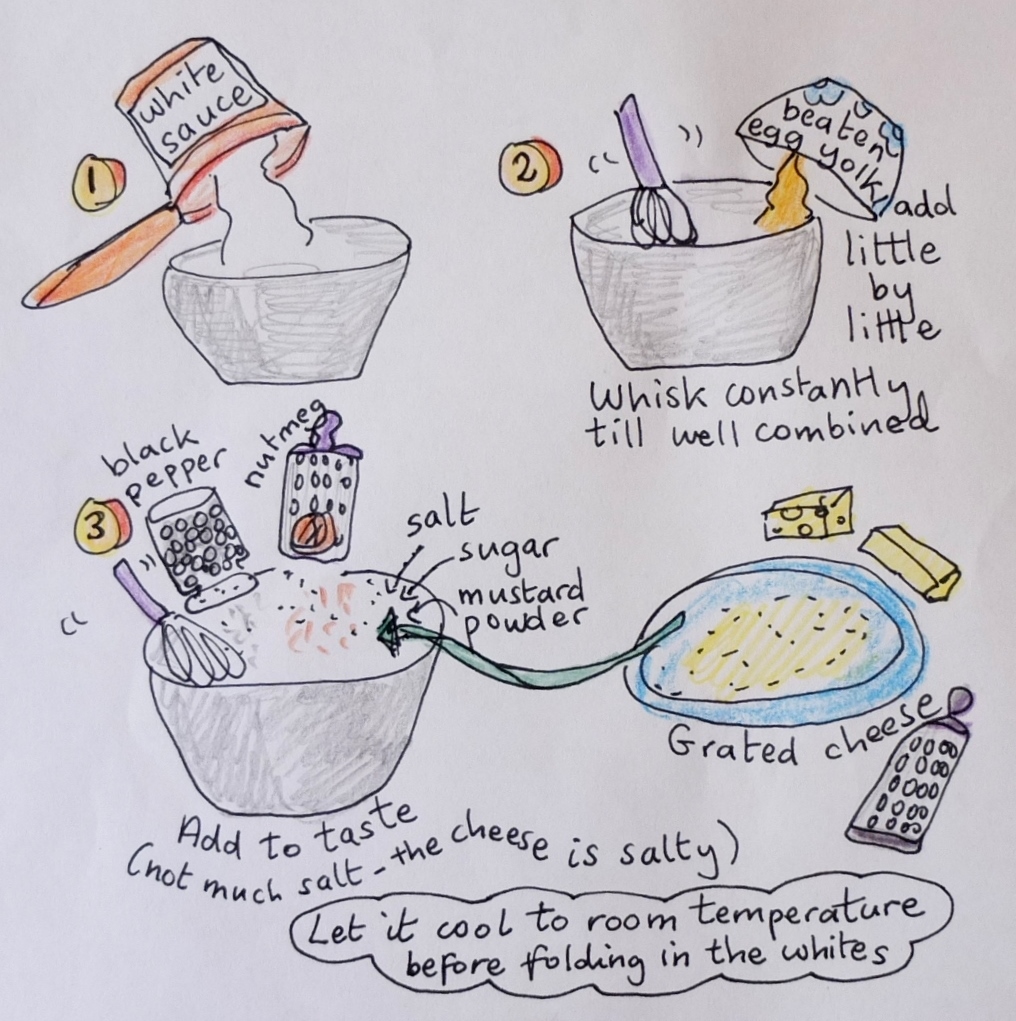 1
white
sauce
2
beaten
egg yolk
add
little
by
little
Whisk constantly
till well combined
3
black
pepper
nutmeg
salt
sugar
mustard
powder
Grated cheese
Add to taste
(not much salt - the cheese is salty)
Let it cool to room temperature
before folding in the whites